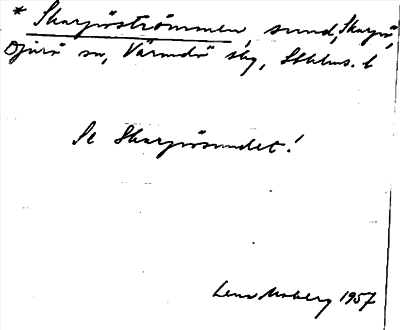 * Skarpöströmmen, sund, Skarpö,
Djurö sn, Värmdö skg, Sthlms. l
Se Skarpösundet!
Lena Moberg 1957